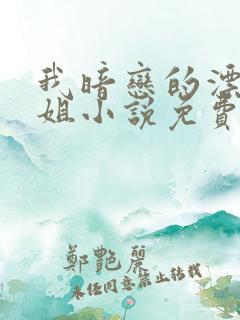 我暗戀的漂
姐小說免費
鄭艷麗
未经同意禁止转载